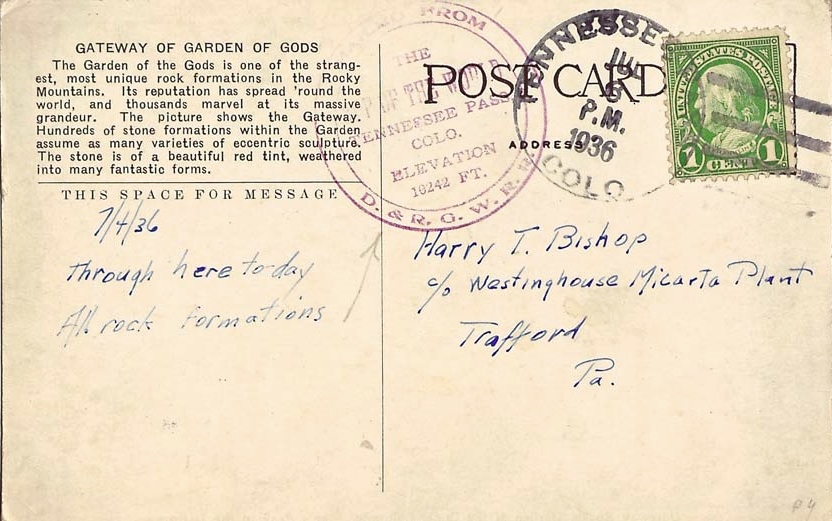 GATEWAY OF GARDEN OF GODS
The Garden of the Gods is one of the strang-
est, most unique rock formations in the Rocky
Mountains. Its reputation has spread 'round the
world, and thousands marvel at its massive
grandeur. The picture shows the Gateway.
Hundreds of stone formations within the Garden
assume as many varieties of eccentric sculpture.
The stone is of a beautiful red tint, weathered
into many fantastic forms.
THIS SPACE FOR MESSAGE
7/4/36
Through here today
All rock formations
FROM
THE
OF THE WORLD
TENNESSEE PASS
COLO.
ELEVATION
10242 FT.
D. & R. G. W. R. R.
POST CARD
ADDRESS
TENNESSEE
JUL
5
P.M.
1936
COLO.
UNITED STATES POSTAGE
1 CENT 1
Harry T. Bishop
c/o Westinghouse Micarta Plant
Trafford
Pa.